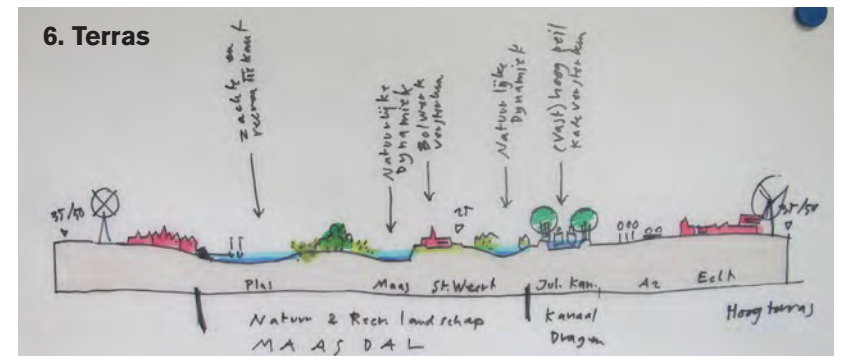 6. Terras
zachte en
Natuurlijke
Dynamiek
Bolwerk
versterken
Natuurlijke
Dynamiek
(Vast) hoog peil
Kade versterken
35/50
25
35/50
Plas
Maas
St. Weert
Jul. Kan.
A2
Echt
Natuur & Recr landschap
MAASDAL
Kanaal
Dragen
Hoog terras